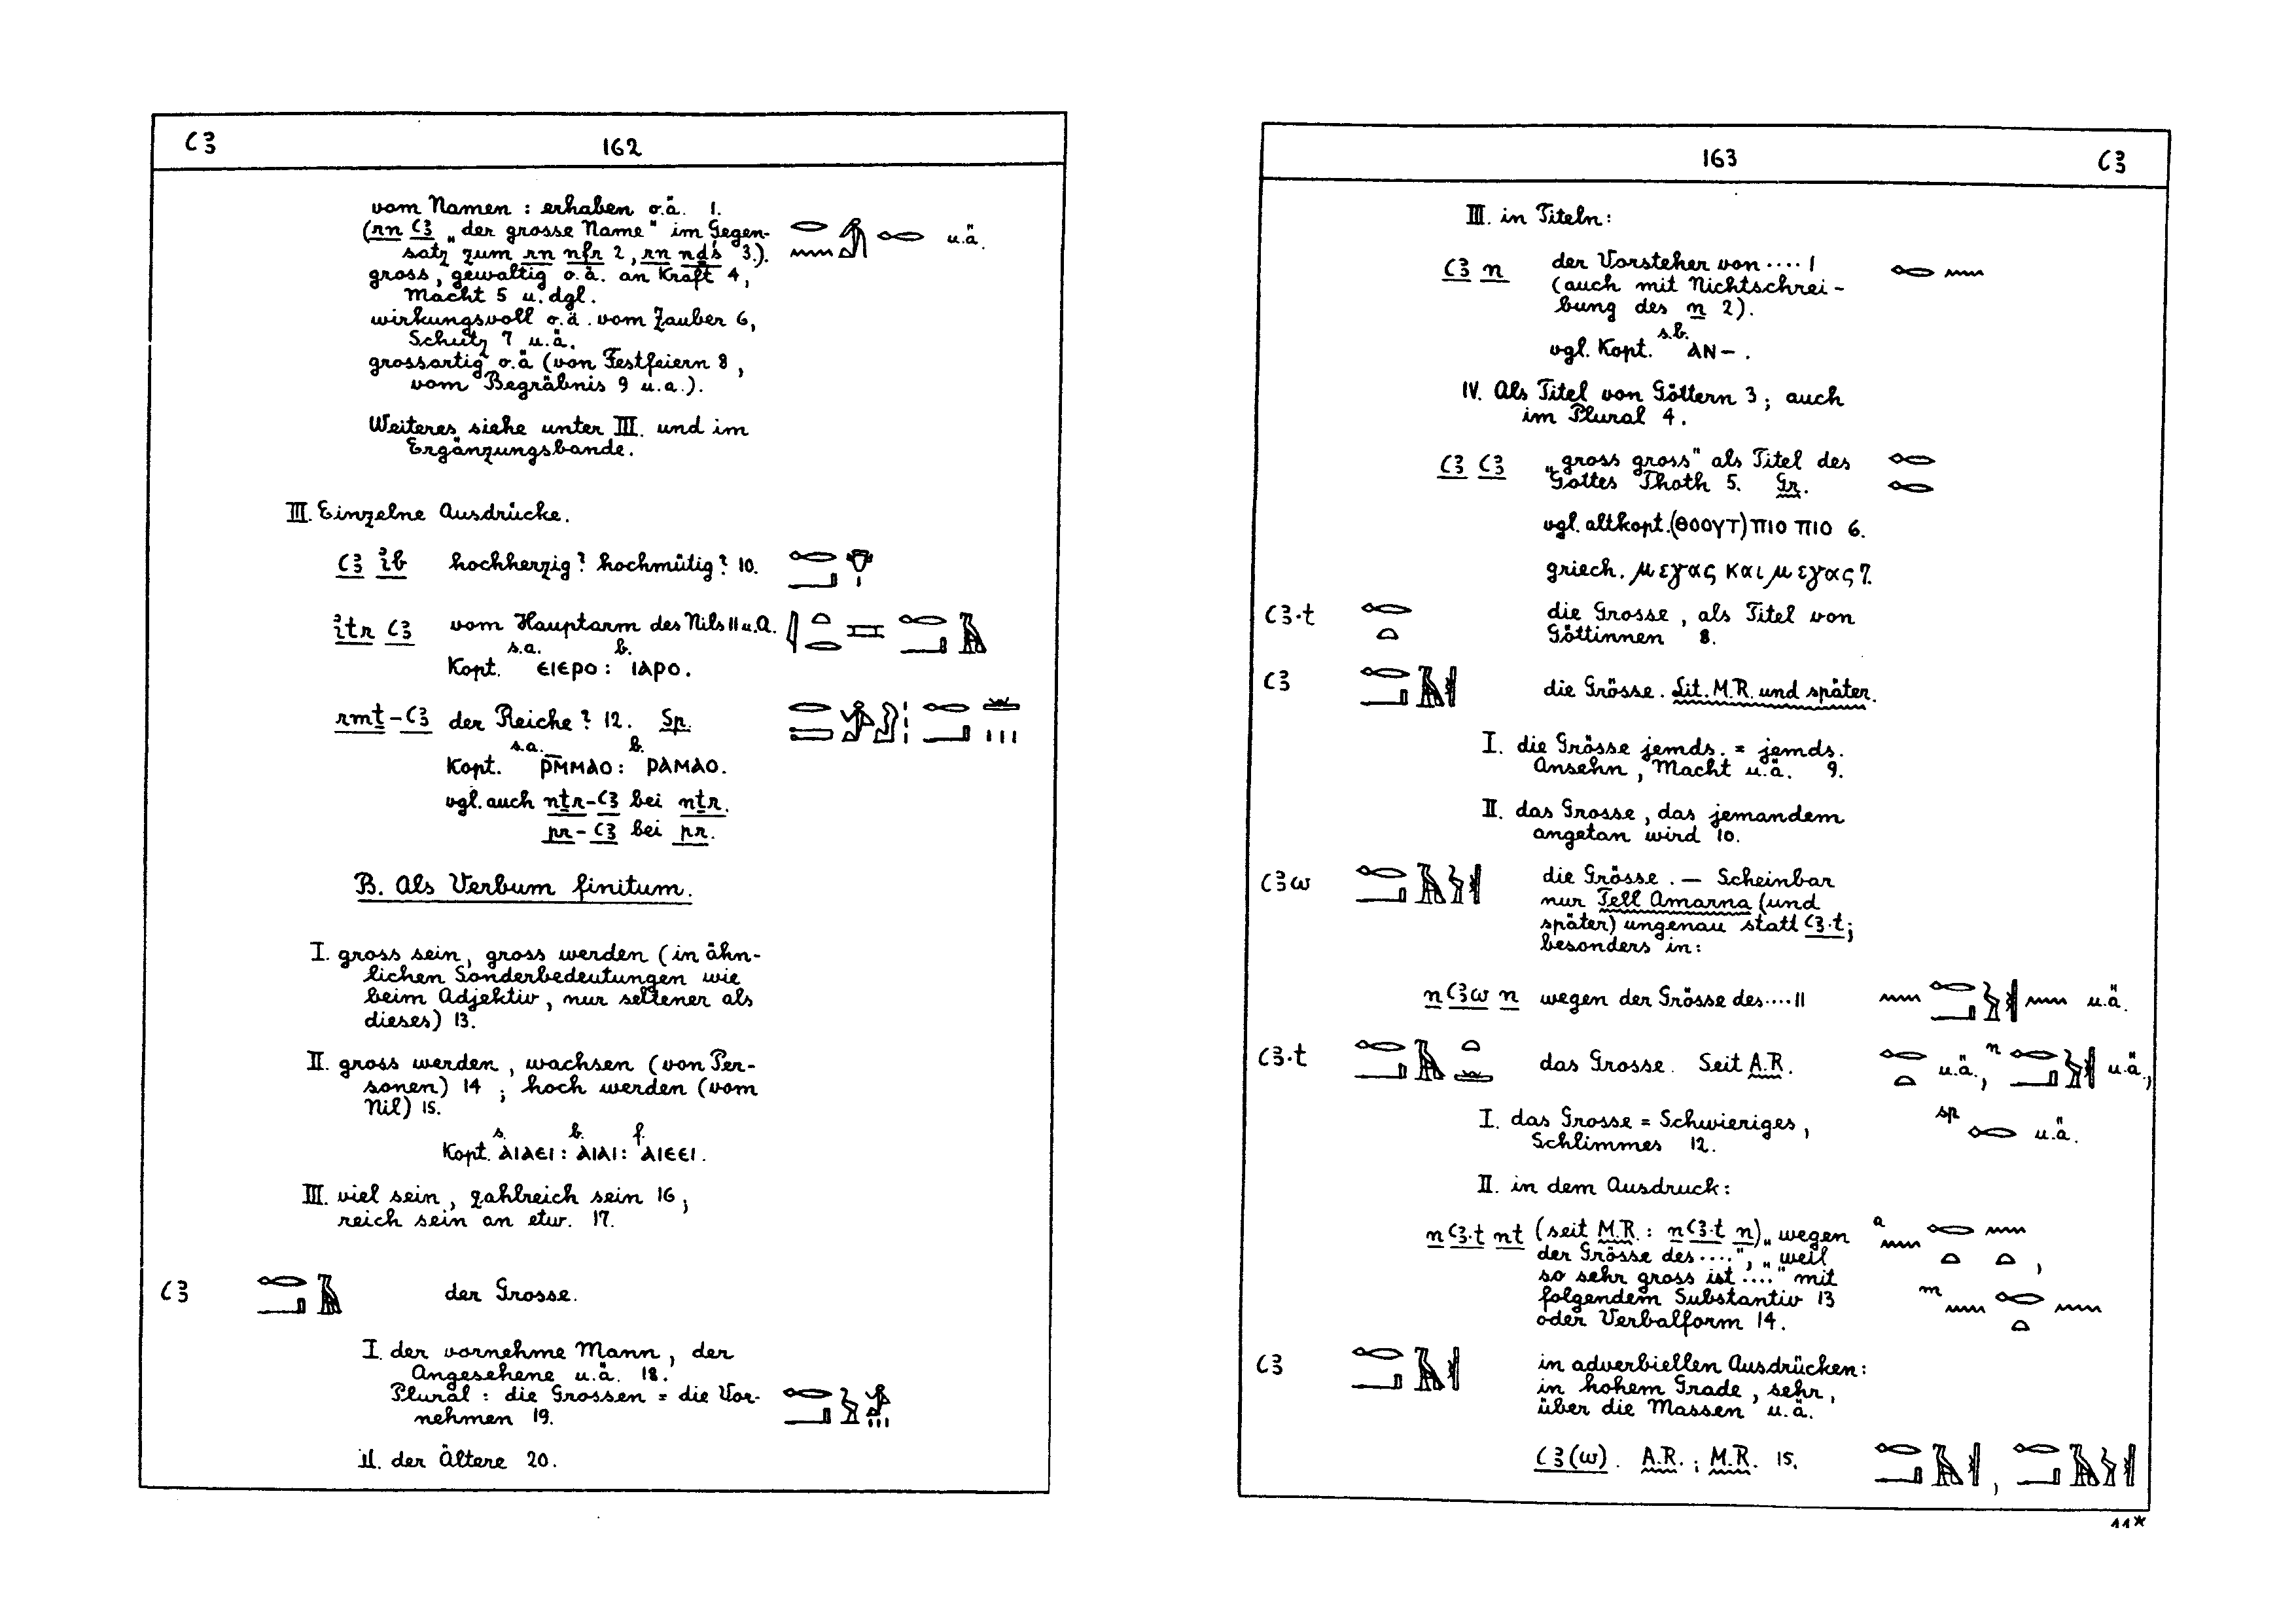 ꜥꜣ 162
vom Namen : erhaben o.ä. 1.
(rn ꜥꜣ „der grosse Name“ im Gegen- u.ä.
satz zum rn nfr 2, rn nḏś 3.).
gross, gewaltig o.ä. an Kraft 4,
Macht 5 u. dgl.
wirkungsvoll o.ä. vom Zauber 6,
Schutz 7 u.ä.
grossartig o.ä (von Festfeiern 8,
vom Begräbnis 9 u.a.).
Weiteres siehe unter III. und im
Ergänzungsbande.
III. Einzelne Ausdrücke.
ꜥꜣ ἰb hochherzig? hochmütig? 10.
ἰtr ꜥꜣ vom Hauptarm des Nils 11 u.A.
s.a. b.
Kopt. ⲉⲓⲉⲣⲟ : ⲓⲁⲣⲟ.
rmṯ-ꜥꜣ der Reiche? 12. Sp.
s.a. b.
Kopt. ⲣⲙ̅ⲙⲁⲟ : ⲣⲁⲙⲁⲟ.
vgl. auch nṯr-ꜥꜣ bei nṯr.
pr-ꜥꜣ bei pr.
B. Als Verbum finitum.
I. gross sein, gross werden (in ähn-
lichen Sonderbedeutungen wie
beim Adjektiv, nur seltener als
dieses) 13.
II. gross werden, wachsen (von Per-
sonen) 14 ; hoch werden (vom
Nil) 15.
s. b. f.
Kopt. ⲁⲓⲁⲉⲓ : ⲁⲓⲁⲓ : ⲁⲓⲉⲉⲓ.
III. viel sein, zahlreich sein 16 ;
reich sein an etw. 17.
ꜥꜣ der Grosse.
I. der vornehme Mann, der
Angesehene u.ä. 18.
Plural : die Grossen = die Vor-
nehmen 19.
II. der Ältere 20.
163 ꜥꜣ
III. in Titeln:
ꜥꜣ n der Vorsteher von .... 1
(auch mit Nichtschrei-
bung des n 2).
s.b.
vgl. Kopt. ⲁⲛ- .
IV. Als Titel von Göttern 3 ; auch
im Plural 4.
ꜥꜣ ꜥꜣ „gross gross“ als Titel des
Gottes Thoth 5. Gr.
vgl. altkopt. (ⲑⲟⲟⲩⲧ) ⲡⲓⲟ ⲡⲓⲟ 6.
griech. μεγας και μεγας 7.
ꜥꜣ·t die Grosse, als Titel von
Göttinnen 8.
ꜥꜣ die Grösse. Lit. M.R. und später.
I. die Grösse jemds. = jemds.
Ansehn, Macht u.ä. 9.
II. das Grosse, das jemandem
angetan wird 10.
ꜥꜣw die Grösse. — Scheinbar
nur Tell Amarna (und
später) ungenau statt ꜥꜣ·t;
besonders in:
n ꜥꜣw n wegen der Grösse des .... 11 u.ä.
ꜥꜣ·t das Grosse. Seit A.R. u.ä., n u.ä.,
I. das Grosse = Schwieriges, sp u.ä.
Schlimmes 12.
II. in dem Ausdruck:
n ꜥꜣ·t nt (seit M.R. : n ꜥꜣ·t n) „wegen a
der Grösse des ....“, „weil ,
so sehr gross ist ....“ mit
folgendem Substantiv 13 m
oder Verbalform 14.
ꜥꜣ in adverbiellen Ausdrücken:
in hohem Grade, sehr,
über die Massen u.ä.
ꜥꜣ(w). A.R. ; M.R. 15. ,
11*